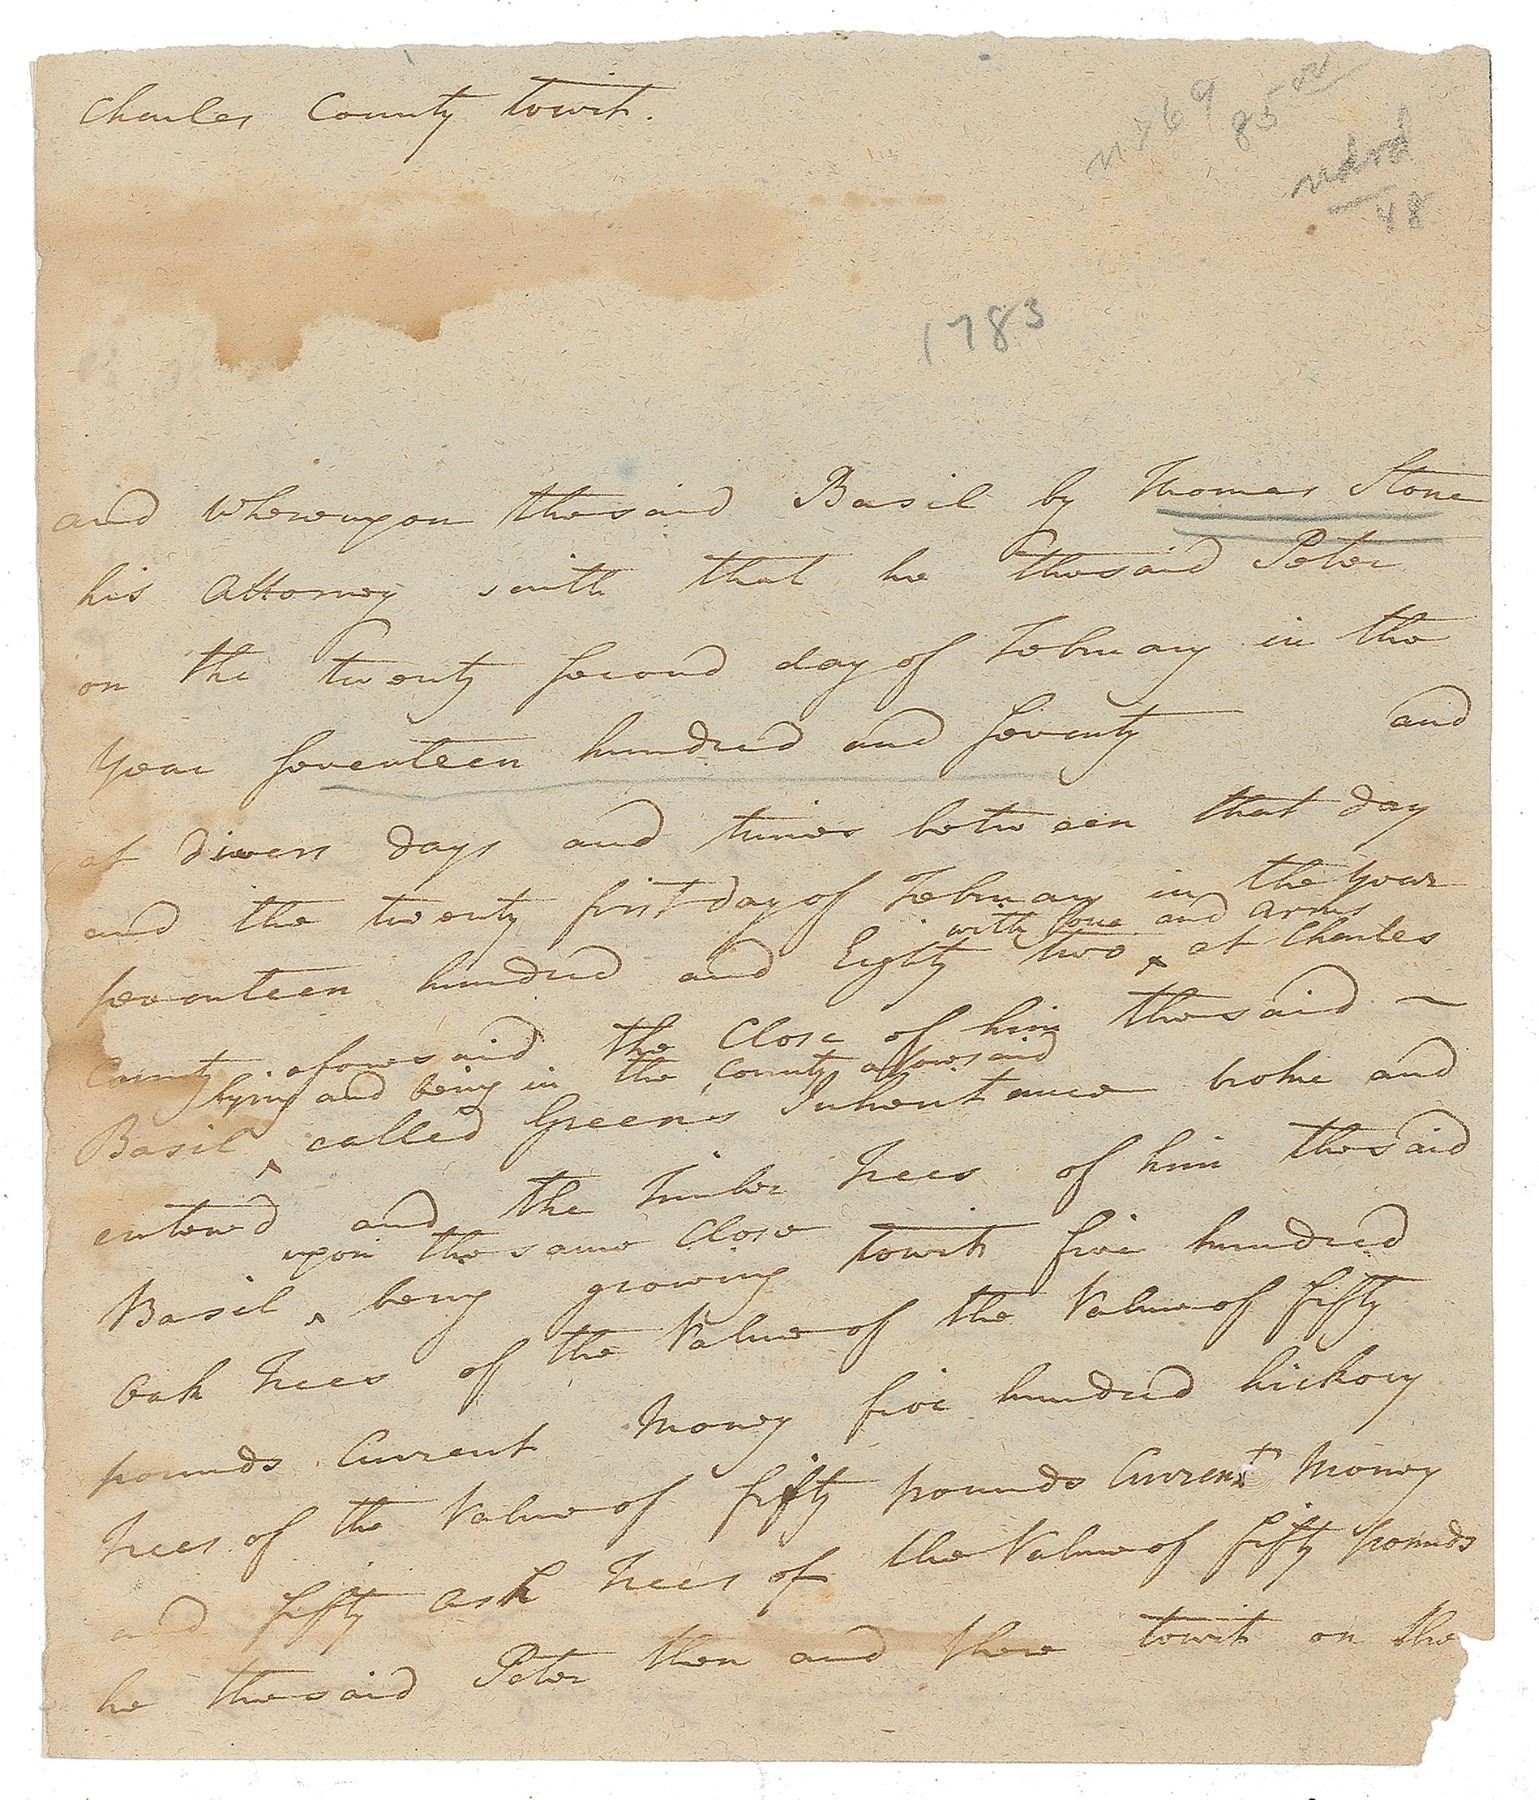 Charles County towit.
85
48
1783
and whereupon the said Basil by Thomas Stone
his Attorney saith that he the said Peter
on the twenty second day of February in the
Year seventeen hundred and seventy and
at divers days and times between that day
and the twenty first day of February in the Year
with force and arms
seventeen hundred and Eighty two ^ at Charles
County aforesaid the Close of him the said ~
lying and being in the County aforesaid
Basil ^ called Greens Inheritance broke and
entered and the Timber Trees of him the said
upon the same Close
Basil ^ being growing towit five hundred
Oak Trees of the Value of the Value of fifty
pounds Current Money five hundred hickory
Trees of the Value of fifty pounds Current Money
and fifty ash Trees of the Value of fifty pounds
he the said Peter then and there towit on the